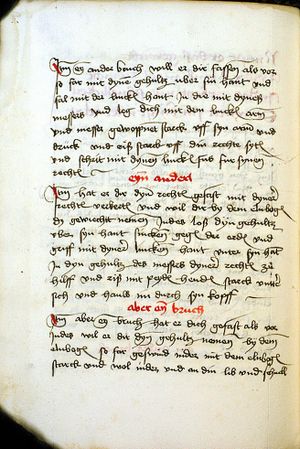 Itm ey ander bruch will er dir fassen als vor
so far mit dyne gehultz uber sin hant und
fal mit der luckn hant In die mit dyness
messers und leg dich mit dem luckn arm
und messer gewopnet starck uff syn arm und
druck und riß starck uff din rechte sytn
und schrit mit dynen luckn fuß fur synen
rechtn
eyn ander
Itm hat er dir dyn rechtn gefast mit dyner
rechtn verkert und wil dir by dem elnbogn
dz gewicht nemen Indes loß dyn gehultz
uber syn hant sincken gegn der erd und
griff mit dyner lincken hant unter syn hat
In dyn gehultz des messers dyner rechtn zu
hilff und riß mit peyde hendn starck unter
sich und haub im durch syn kopff
aber eyn bruch
Itm aber eyn bruch hat er dich gefast als vor
Indes wil er dir dyn gehultz nemen by dem
elnbogn so far geswind wider mit dem elnbogn
starck und wol wider und an din lib und schnel